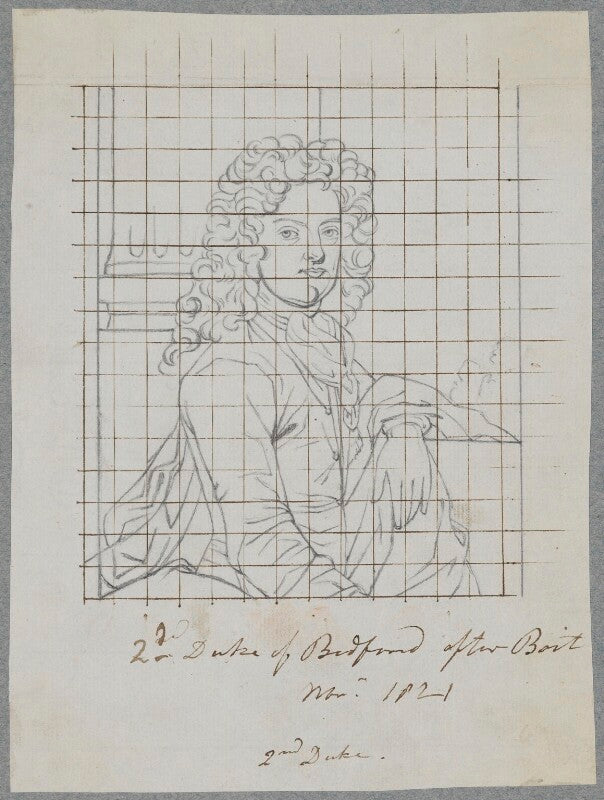 2d Duke of Bedford after Boit
Novr. 1821
2nd Duke.